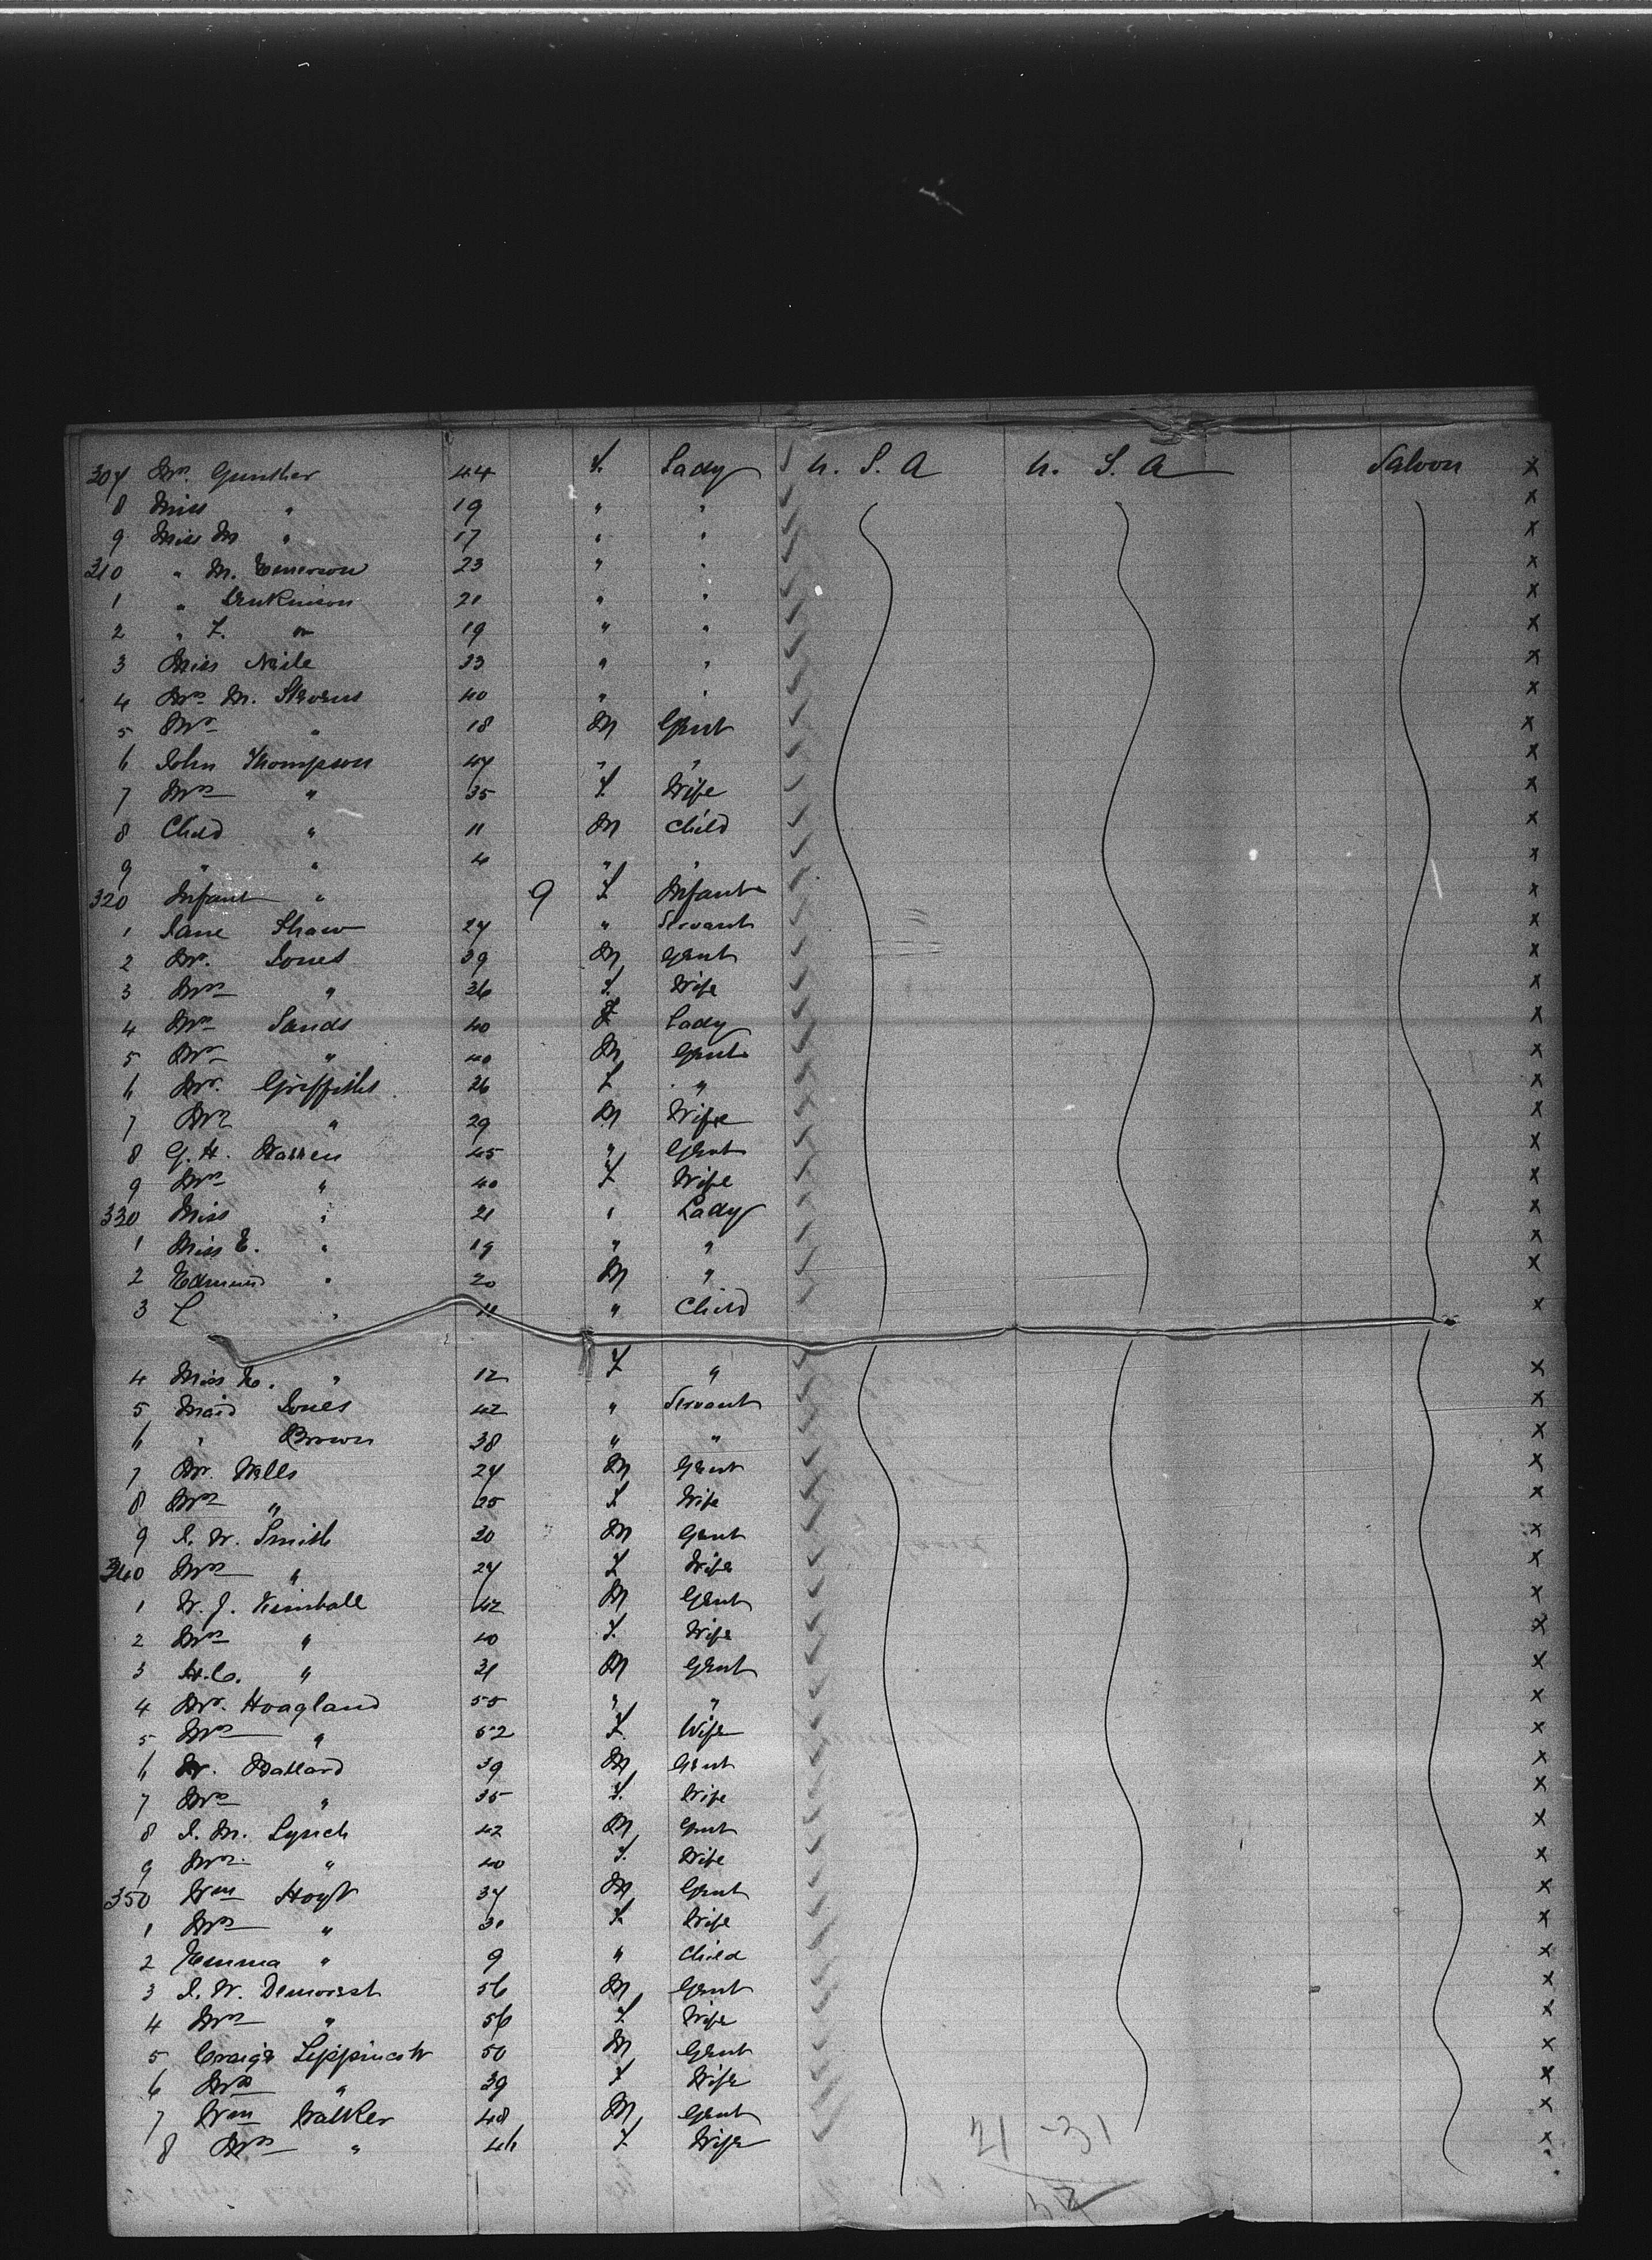 307 Mrs. Gunther 44 F. Lady U. S. A U. S. A Saloon x
8 Miss " 19 " " x
9 Miss M " 17 " " x
310 " M. Emerson 23 " " x
1 " Jenkinson 21 " " x
2 " F. " 19 " " x
3 Miss 23 " " x
4 Mrs M. Stevens 40 " " x
5 Mr " 18 M Gent x
6 John Thompson 47 " " x
7 Mrs " 35 F. Wife x
8 Child " 11 M Child x
9 " " 4 " " x
320 Infant " 9 F Infant x
1 Jane Shaw 27 " Servant x
2 Mr. Jones 39 M Gent x
3 Mrs " 36 F. Wife x
4 Mrs Sands 40 F Lady x
5 Mr " 40 M Gent x
6 Mr. Griffiths 26 F " x
7 Mrs " 29 M Wife x
8 G. H. Warren 45 " Gent x
9 Mrs " 40 F Wife x
330 Miss " 21 " Lady x
1 Miss E. " 19 " " x
2 Edmund " 20 M " x
3 L " 11 " Child x
4 Miss " 12 F " x
5 Maid Jones 42 " Servant x
6 " Brown 38 " " x
7 Mr. Wells 27 M Gent x
8 Mrs " 25 F Wife x
9 J. W. Smith 30 M Gent x
340 Mrs " 27 F Wife x
1 W. J. Kimball 42 M Gent x
2 Mrs " 40 F. Wife x
3 H. C. " 31 M Gent x
4 Mr. Hoagland 55 " " x
5 Mrs " 52 F Wife x
6 Mr. Ballard 39 M Gent x
7 Mrs " 35 F. Wife x
8 J. M. Lynch 42 M Gent x
9 Mrs. " 40 F. Wife x
350 Wm Hoyt 37 M Gent x
1 Mrs " 31 F Wife x
2 Emma " 9 " Child x
3 J. W. Demorest 56 M Gent x
4 Mrs " 56 F. Wife x
5 Craige Lippincott 50 M Gent x
6 Mrs " 39 F Wife x
7 Wm Walker 48 M Gent x
8 Mrs " 46 F Wife x
21 - 31